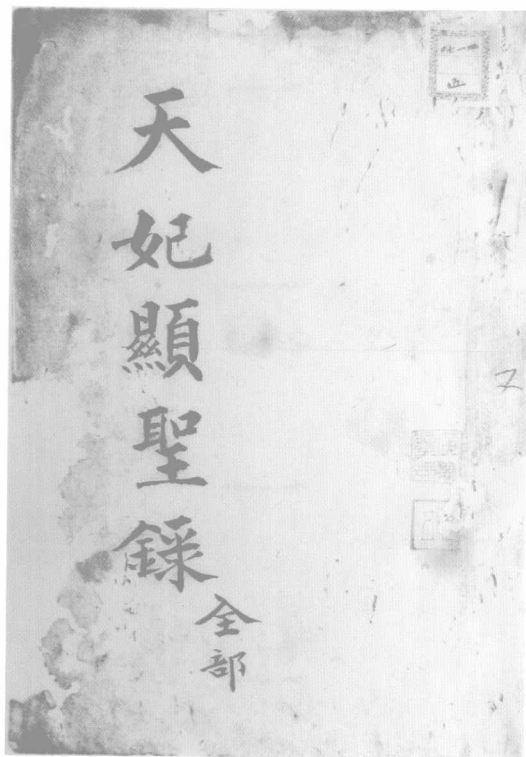 天妃顯聖錄
全部